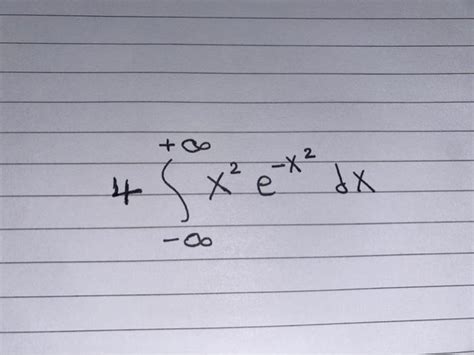 4 ∫_{-∞}^{+∞} x² e^{-x²} dx